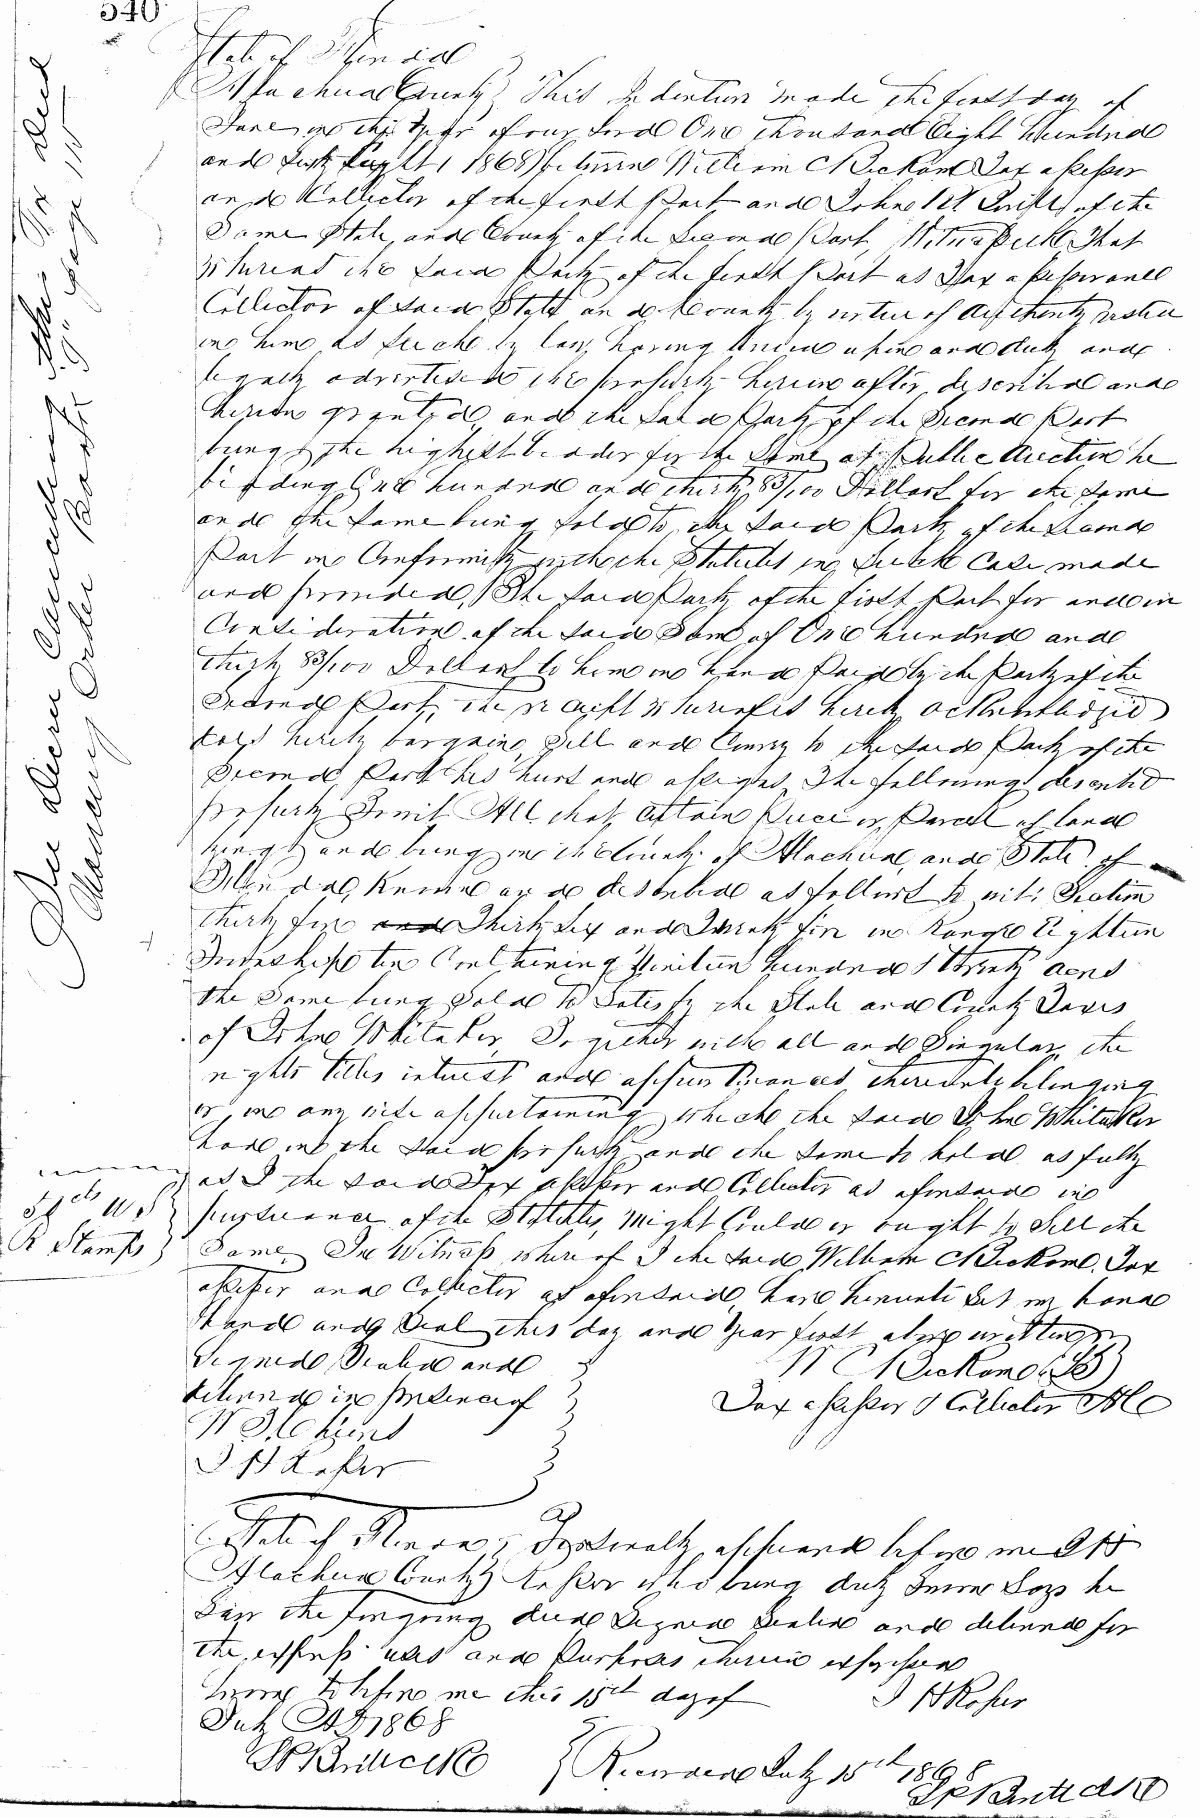 540
State of Florida
Alachua County } This Indenture made the first day of
June in the Year of our Lord One thousand Eight hundred
and Sixty Eight (1868) between William C Rickard Tax assessor
and Collector of the first Part and John W of the
Same State, and County of the Second Part, Witnesseth That
Whereas the said Party of the first Part as Tax assessor and
Collector of said State and County by virtue of authority vested
in him as such by law, having levied upon and duly and
legally advertised the property herein after described and
herein granted, and the said Party of the Second Part
being the highest bidder for the Same at Public Auction he
bidding One hundred and thirty 83/100 Dollars for the same
and the same being sold to the said Party of the Second
Part in Conformity with the Statutes in Such Case made
and provided, The said Party of the first Part for and in
Consideration of the said Sum of One hundred and
thirty 83/100 Dollars to him in hand Paid by the Party of the
Second Part, the receipt whereof is hereby acknowledged
does hereby bargain, Sell and Convey to the said Party of the
Second Part his heirs and assigns, The following described
property Towit All that certain Piece or Parcel of land
lying and being in the County of Alachua, and State of
Florida, Known and described as follows to wit: Section
thirty five and Thirty Six and Twenty five in Range Eighteen
Township ten Containing Nineteen hundred & twenty acres
the Same being Sold To Satisfy the State and County Taxes
of John Whitaker, Together with all and Singular, the
rights titles interest and appurtenances thereunto belonging
or in any wise appertaining which the said John Whitaker
have in the said property and the same to hold as fully
as I the said Tax assessor and Collector as aforesaid in
pursuance of the Statutes, might Could or ought to Sell the
Same In Witness whereof I the said William C Rickard Tax
assessor and Collector as aforesaid, have hereunto set my hand
hand and Seal this day and Year first above written
Signed Sealed and
delivered in presence of
W C Rickard (LS)
Tax assessor & Collector A C
W
J H Roper
State of Florida } Personally appeared before me J H
Alachua County } Roper who being duly Sworn Says he
Saw the foregoing deed Signed Sealed and delivered for
the express uses and Purposes therein expressed
Sworn to before me this 15th day of
July AD 1868
J H Roper
Recorded July 15th 1868
See Decree Cancelling this Tax Deed
Chancery Order Book "9" page 115
50 cts U S
R Stamps